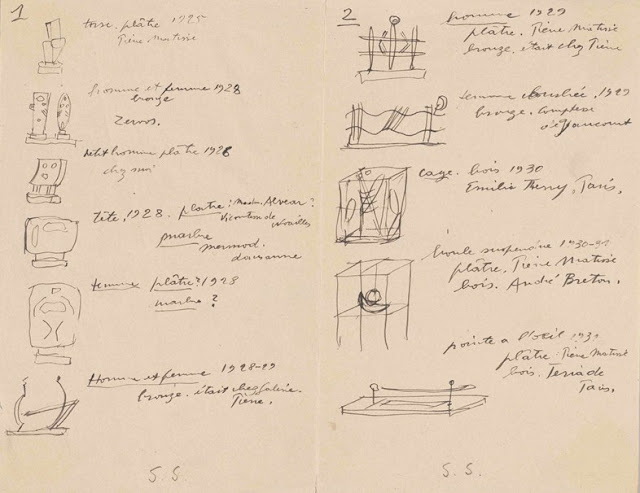 1
torse. plâtre 1925
Pierre Matisse
homme et femme 1928
bronze
Zervos.
petit homme plâtre 1926
chez moi
tête. 1928. plâtre : Madm. Alvear ?
Vicomtesse de Noailles
marbre
mermod.
Lausanne
femme plâtre ? 1928
marbre ?
Homme et femme 1928-29
bronze. était chez Galerie.
Pierre.
S.S.
2
homme 1929
plâtre. Pierre Matisse
bronze. était chez Pierre
femme couchée. 1929
bronze. Comptesse
cage. bois 1930
Emilio Therry, Paris.
boule suspendue 1930-31
plâtre. Pierre Matisse
bois. André Breton.
pointe à l'oeil 1931
plâtre. Pierre Matisse
bois. Teriade
Paris.
S.S.